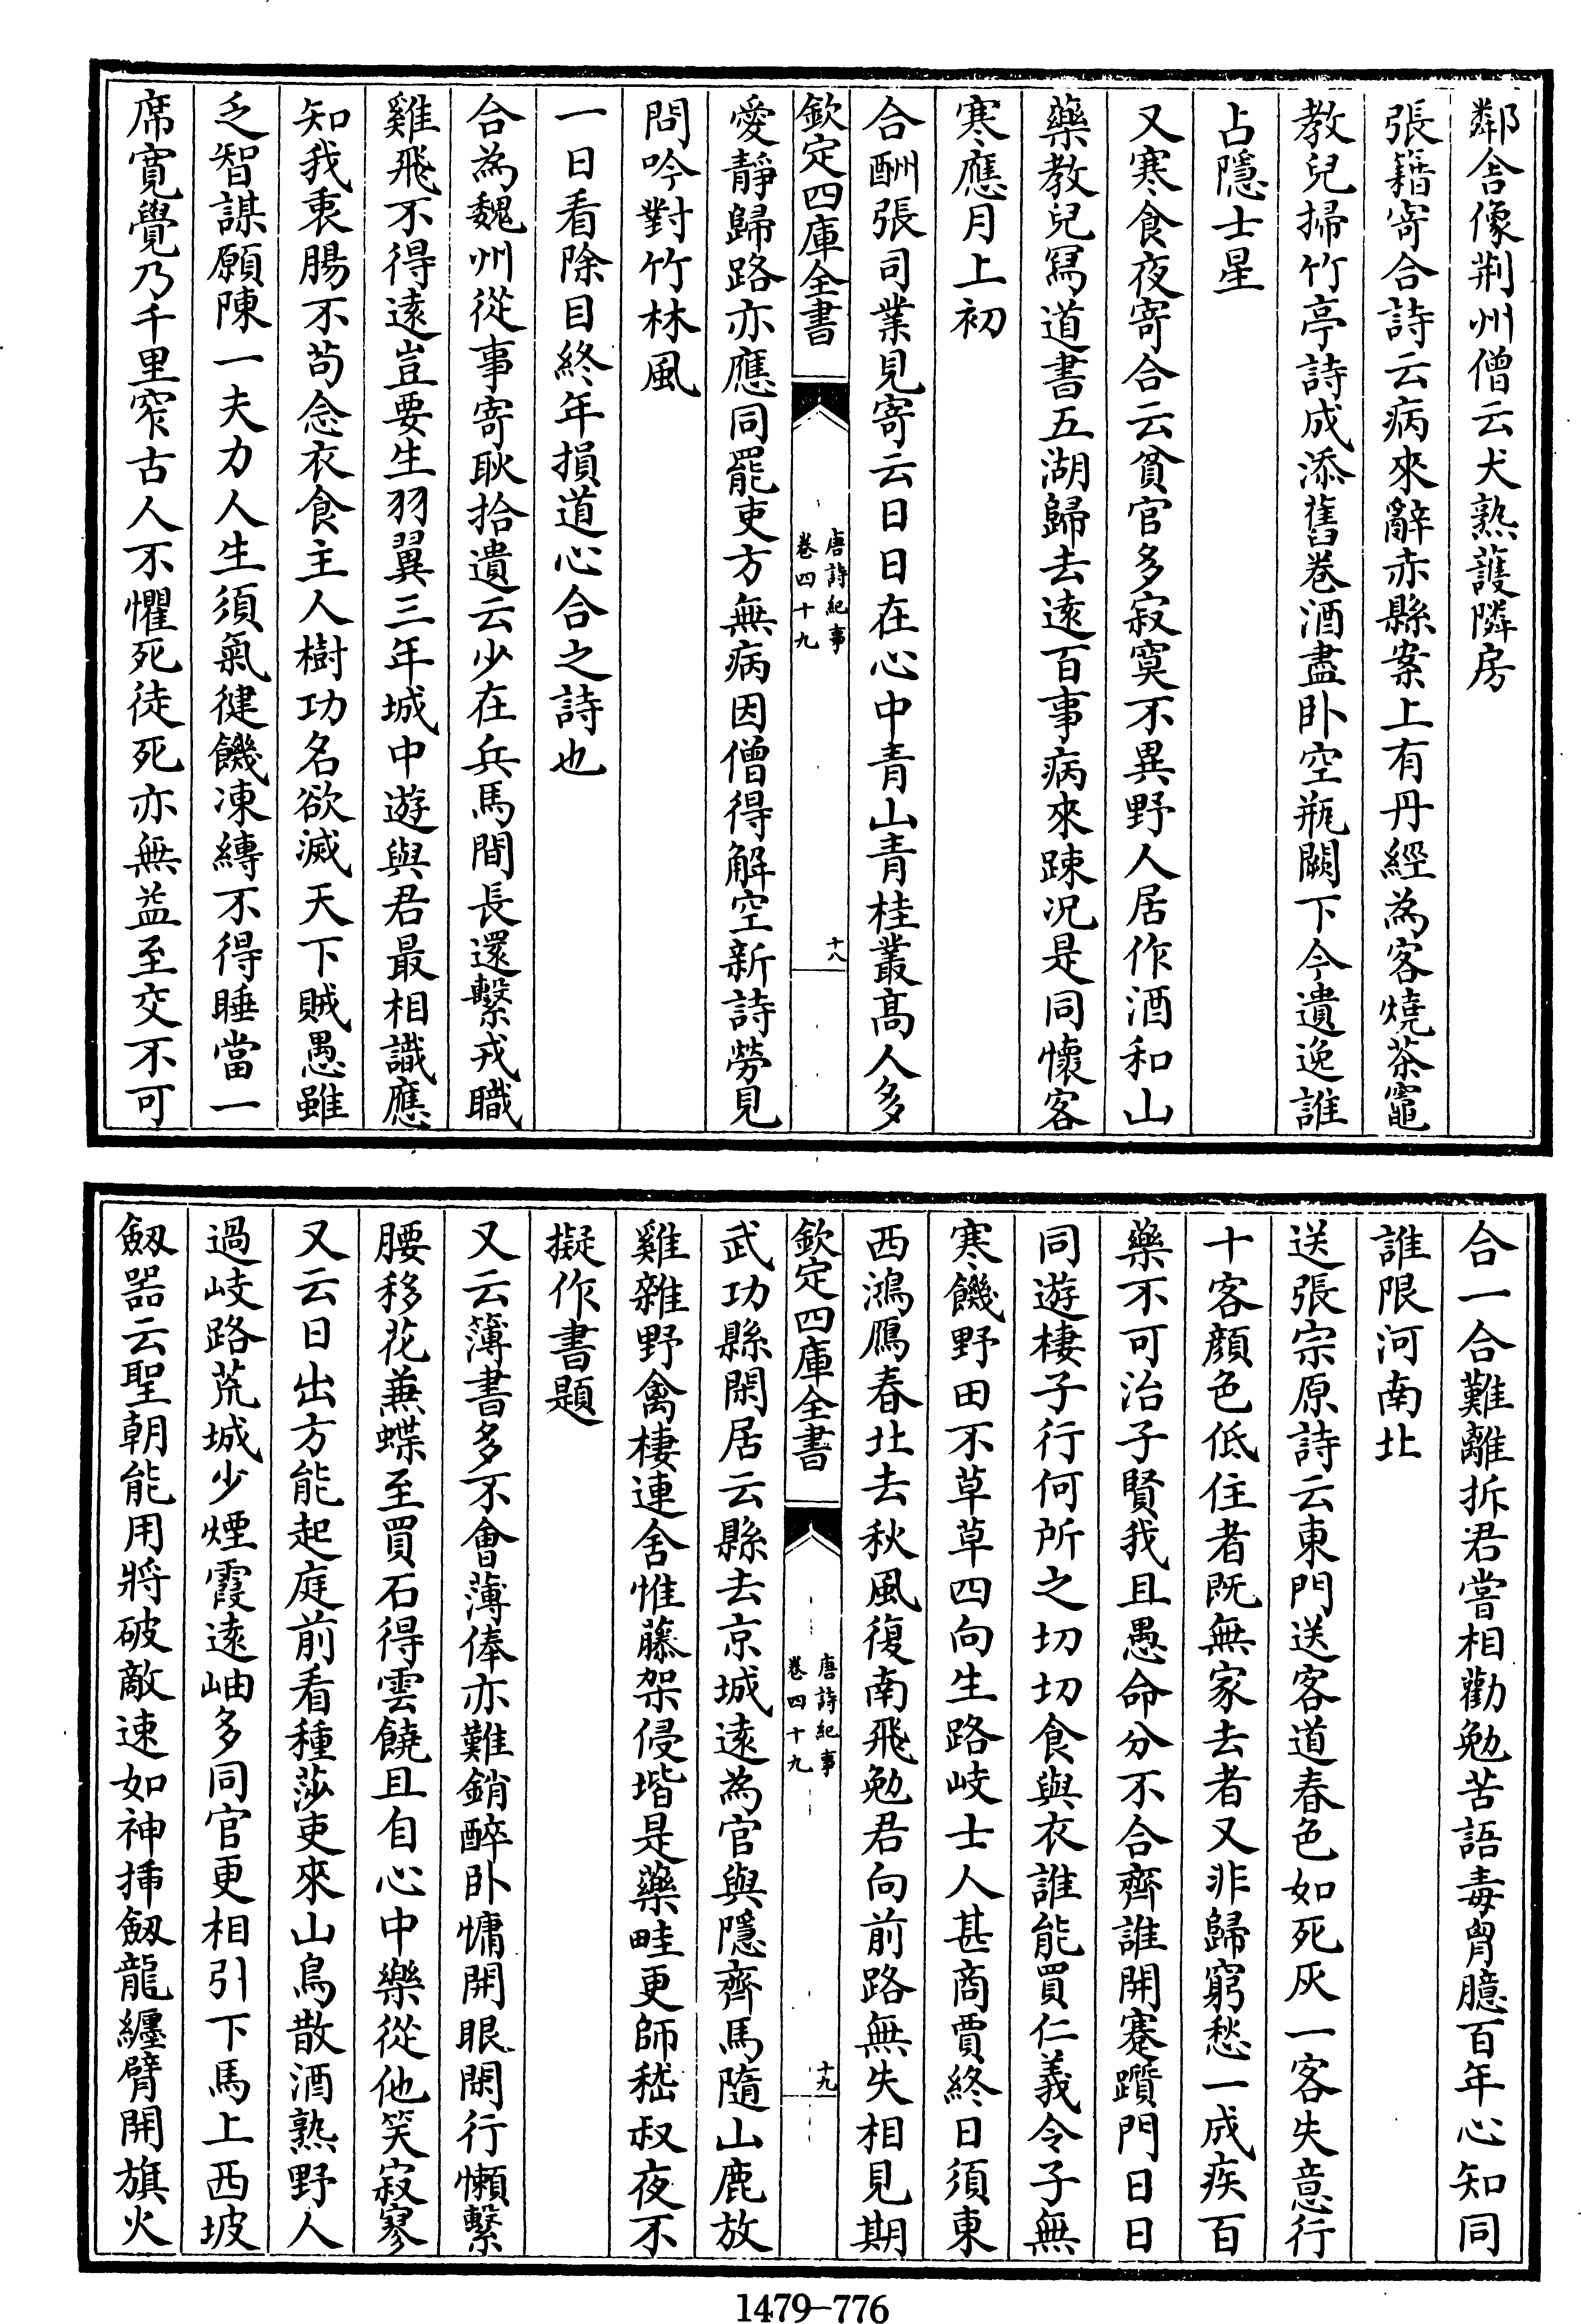 鄰舍像荆州僧云犬熟護隣房
張籍寄合詩云病來辭赤縣案上有丹經為客燒茶竈
教兒掃竹亭詩成添舊卷酒盡卧空瓶闕下今遺逸誰
占隱士星
又寒食夜寄合云貧官多寂寞不異野人居作酒和山
藥教兒寫道書五湖歸去遠百事病來踈況是同懷客
寒應月上初
合酬張司業見寄云日日在心中青山青桂叢高人多
欽定四庫全書
唐詩紀事
卷四十九
十八
愛靜歸路亦應同罷吏方無病因僧得解空新詩勞見
問吟對竹林風
一日看除目終年損道心合之詩也
合為魏州從事寄耿拾遺云少在兵馬間長還繫戎職
雞飛不得遠豈要生羽翼三年城中遊與君最相識應
知我衷腸不苟念衣食主人樹功名欲滅天下賊愚雖
乏智謀願陳一夫力人生須氣健饑凍縛不得睡當一
席寬覺乃千里窄古人不懼死徒死亦無益至交不可
合一合難離拆君嘗相勸勉苦語毒胷臆百年心知同
誰限河南北
送張宗原詩云東門送客道春色如死灰一客失意行
十客顔色低住者既無家去者又非歸窮愁一成疾百
藥不可治子賢我且愚命分不合齊誰開蹇躓門日日
同遊棲子行何所之切切食與衣誰能買仁義令子無
寒饑野田不草草四向生路岐士人甚商賈終日須東
西鴻鴈春北去秋風復南飛勉君向前路無失相見期
欽定四庫全書
唐詩紀事
卷四十九
十九
武功縣閑居云縣去京城遠為官與隱齊馬隨山鹿放
雞雜野禽棲連舍惟藤架侵堦是藥畦更師嵇叔夜不
擬作書題
又云簿書多不會薄俸亦難銷醉卧慵開眼閑行懶繫
腰移花兼蝶至買石得雲饒且自心中樂從他笑寂寥
又云日出方能起庭前看種莎吏來山鳥散酒熟野人
過岐路荒城少煙霞遠岫多同官更相引下馬上西坡
劔器云聖朝能用將破敵速如神揷劔龍纏臂開旗火
1479-776